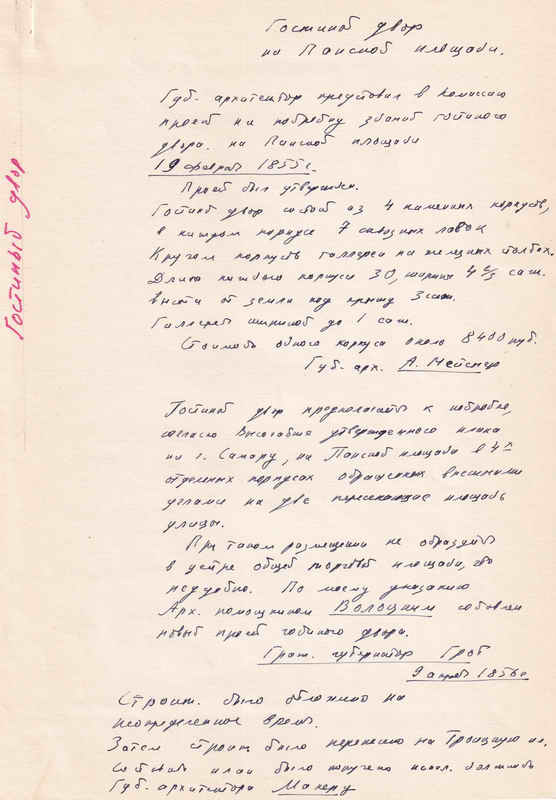 Гостиный двор
на Панской площади.
Гостиный двор
Губ. архитектор представил в комиссию
проект на постройку зданий гостиного
двора на Панской площади
19 февраля 1855 г.
Проект был утвержден.
Гостиный двор состоит из 4 каменных корпусов,
в каждом корпусе 7 сквозных лавок
Кругом корпусов галлереи на столбах.
Длина каждого корпуса 30, ширина 4 2/3 саж.
высота от земли под крышу 3 саж.
Галлерея шириной до 1 саж.
Стоимость одного корпуса около 8400 руб.
Губ. арх. А. Мейснер
Гостиный двор предполагается к постройке,
согласно Высочайше утвержденного плана
на г. Самару, на Панской площади в 4-х
отдельных корпусах обращенных внешними
углами на две пересекающие площадь
улицы.
При таком размещении не образуется
в центре общей торговой площади, что
неудобно. По моему указанию
Арх. помощником составлен
новый проект гостиного двора.
Граж. губернатор Грот
9 апреля 1856 г.
Строит. было отложено на
неопределенное время.
Затем строит. было перенесено на Троицкую пл.
было получено
Губ. архитектора Макеру